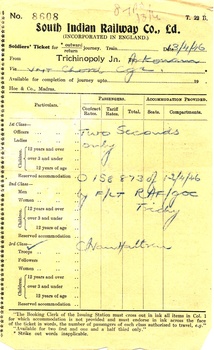 No. 8608
T. 29 B.
South Indian Railway Co., Ld.
(INCORPORATED IN ENGLAND.)
Soldiers' Ticket for * outward return journey. Train Date 13/4/46
From Trichinopoly Jn. to
Via Chord
Available for completion of journey upto 19
Hoe & Co., Madras.
Particulars.
PASSENGERS.
ACCOMMODATION PROVIDED.
Contract Rates.
Tariff Rates.
Scale.
Compartments.
1st Class—
Officers
Ladies
Two Seconds
only
Children
12 years and over
over 3 and under 12 years of age
Reserved accommodation
2nd Class—
Men
Women
Children
12 years and over
over 3 and under 12 years of age
Reserved accommodation
3rd Class—
Troops
Followers
Children
12 years and over
over 3 and under 12 years of age
Reserved accommodation
"The Booking Clerk of the Issuing Station must cross out in ink all items in Col. 1
for which accommodation is not provided and must endorse in ink across the face
of the ticket in words, the number of passengers of each class authorised to travel, e.g.,
"Available for two first and one and a half third only."
* Strike out words inapplicable.